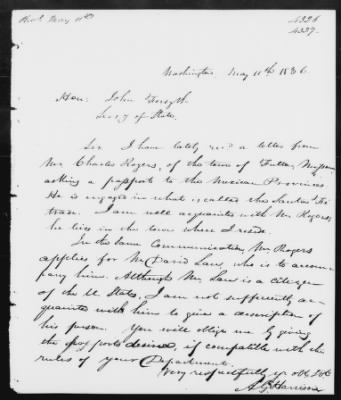 Recd May 11th
4336
4337.
Washington May 11th 1836.
Hon: John Forsyth.
Secy of State.
Sir I have lately recd a letter from
Mr. Charles Rogers, of the town of Fulton, Missouri
asking a passport to the Mexican Provinces
He is engaged in what is called the Santa Fe
trade. I am well acquainted with Mr. Rogers,
he lives in the town where I reside.
In the same Communication, Mr. Rogers
applies for Mr David Law, who is to accom-
pany him. Although Mr. Law is a citizen
of the U. States, I am not sufficiently ac-
quainted with him to give a description of
his person. You will oblige me by giving
the passports desired, if compatible with the
rules of your Department.
Very respectfully yr obt Svt
A. G. Harrison